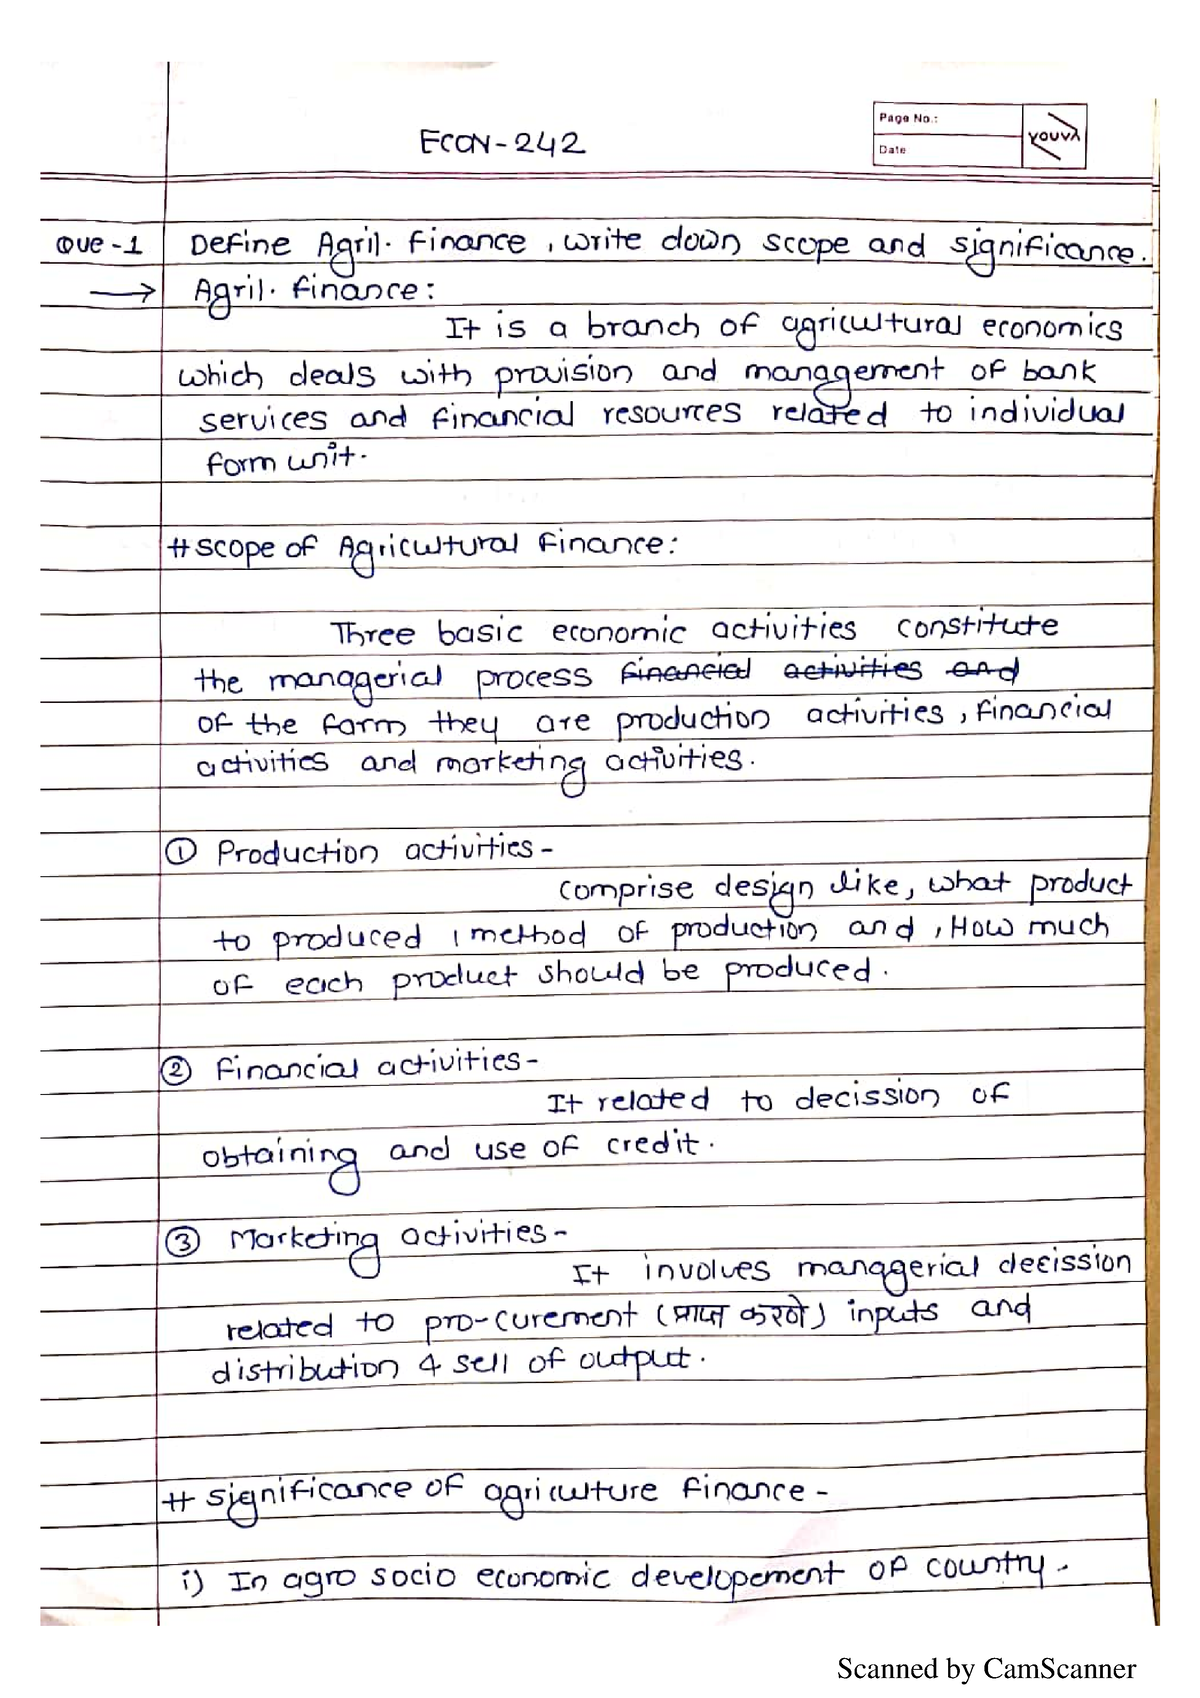 ECON-242
Page No.:
Date
youva
Que-1 Define Agril. Finance, write down scope and significance.
→ Agril. Finance:
It is a branch of agricultural economics
which deals with provision and management of bank
services and financial resources related to individual
form unit.
# scope of Agricultural Finance:
Three basic economic activities constitute
the managerial process financial activities and
of the farm they are production activities, financial
activities and marketing activities.
① Production activities-
comprise design like, what product
to produced, method of production and, How much
of each product should be produced.
② Financial activities-
It related to decission of
obtaining and use of credit.
③ Marketing activities-
It involves managerial decission
related to pro-curement (प्राप्त करणे) inputs and
distribution & sell of output.
# significance of agriculture finance-
i) In agro socio economic developement of country.
Scanned by CamScanner